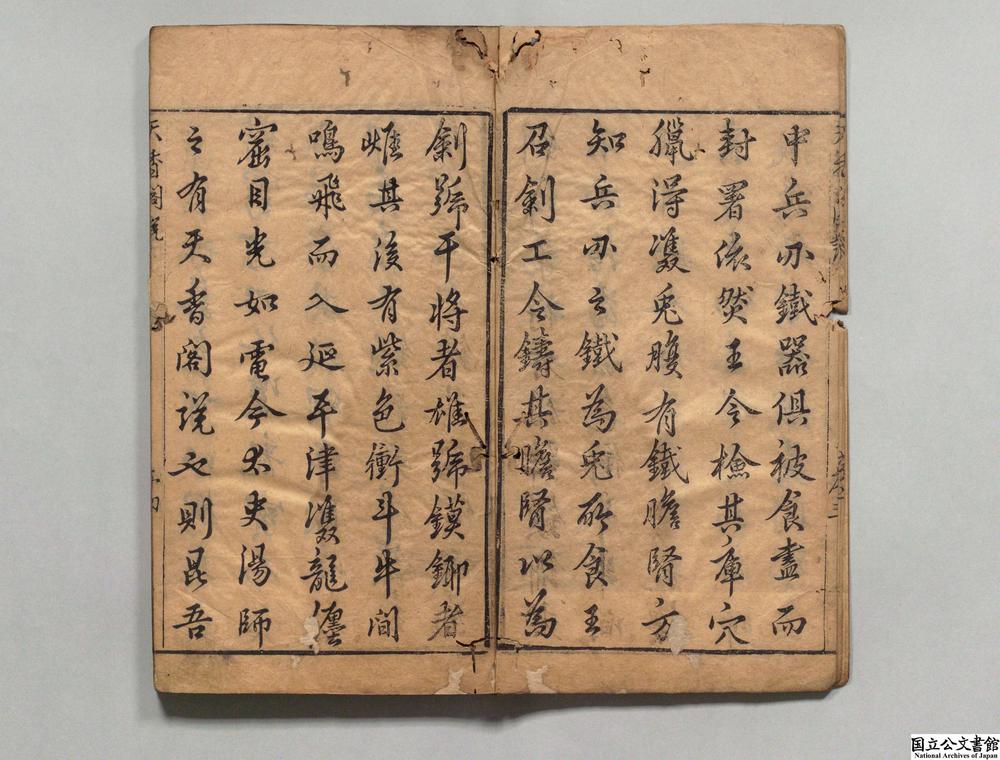 甲兵刃鐵器俱被食盡而
封署依然王令檢其庫穴
獵得雙兔腹有鐵膽腎方
知兵刃之鐵為兔所食王
召劍工令鑄其膽腎以為
劍號干將者雄號鏌鋣者
雌其後有紫色衝斗牛間
鳴飛而入延平津雙龍纏
窟目光如電今太史湯師
之有天香閣說也則昆吾
天香閣說
国立公文書館
National Archives of Japan